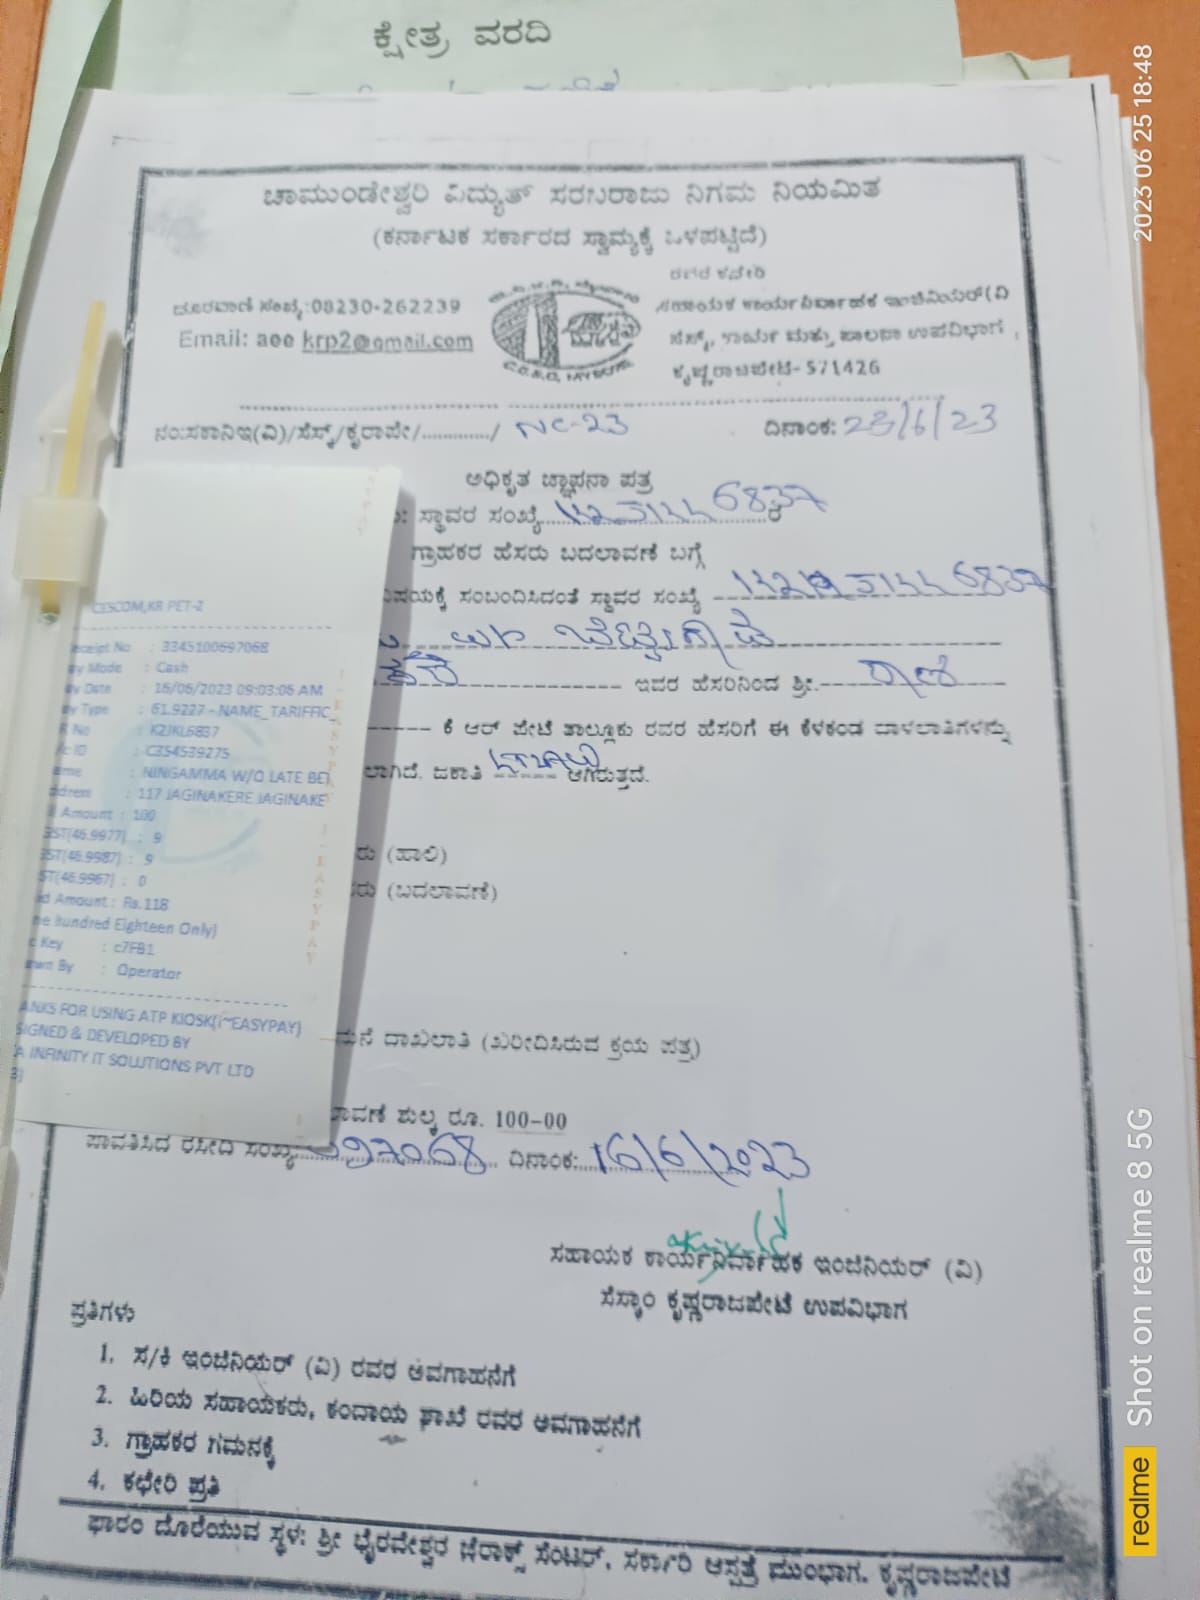 ಕ್ಷೇತ್ರ ವರದಿ
ಚಾಮುಂಡೇಶ್ವರಿ ವಿದ್ಯುತ್ ಸರಬರಾಜು ನಿಗಮ ನಿಯಮಿತ
(ಕರ್ನಾಟಕ ಸರ್ಕಾರದ ಸ್ವಾಮ್ಯಕ್ಕೆ ಒಳಪಟ್ಟಿದೆ)
ರವರ ಕಚೇರಿ
ದೂರವಾಣಿ ಸಂಖ್ಯೆ:08230-262239
ಸಹಾಯಕ ಕಾರ್ಯನಿರ್ವಾಹಕ ಇಂಜಿನಿಯರ್(ವಿ
Email: aee krp2@gmail.com
ಕಾರ್ಯ ಮತ್ತು ಪಾಲನಾ ಉಪವಿಭಾಗ,
ಕೃಷ್ಣರಾಜಪೇಟೆ-571426
ನಂ:ಸಕಾನಿಇ(ವಿ)/ಸೆಸ್ಕ್/ಕೃರಾಪೇ/............/ NC-23 ದಿನಾಂಕ: 23/6/23
ಅಧಿಕೃತ ಜ್ಞಾಪನಾ ಪತ್ರ
ಸ್ಥಾವರ ಸಂಖ್ಯೆ 6837
ಗ್ರಾಹಕರ ಹೆಸರು ಬದಲಾವಣೆ ಬಗ್ಗೆ
ವಿಷಯಕ್ಕೆ ಸಂಬಂದಿಸಿದಂತೆ ಸ್ಥಾವರ ಸಂಖ್ಯೆ 6837
ಇವರ ಹೆಸರಿನಿಂದ ಶ್ರೀ.
ಕೆ ಆರ್ ಪೇಟೆ ತಾಲ್ಲೂಕು ರವರ ಹೆಸರಿಗೆ ಈ ಕೆಳಕಂಡ ದಾಳಲಾತಿಗಳನ್ನು
ಲಾಗಿದೆ. ಜಕಾತಿ ಆಗಿರುತ್ತದೆ.
ರು (ಹಾಲಿ)
ಸರು (ಬದಲಾವಣೆ)
ಮನೆ ದಾಖಲಾತಿ (ಖರೀದಿಸಿರುವ ಕ್ರಯ ಪತ್ರ)
ಾವಣೆ ಶುಲ್ಕ ರೂ. 100-00
ಪಾವತಿಸಿದ ರಸೀದಿ ಸಂಖ್ಯೆ 697068 ದಿನಾಂಕ: 16/6/2023
ಸಹಾಯಕ ಕಾರ್ಯನಿರ್ವಾಹಕ ಇಂಜಿನಿಯರ್ (ವಿ)
ಸೆಸ್ಕಾಂ ಕೃಷ್ಣರಾಜಪೇಟೆ ಉಪವಿಭಾಗ
ಪ್ರತಿಗಳು
1. ಸ/ಕಿ ಇಂಜಿನಿಯರ್ (ವಿ) ರವರ ಅವಗಾಹನೆಗೆ
2. ಹಿರಿಯ ಸಹಾಯಕರು, ಕಂದಾಯ ಶಾಖೆ ರವರ ಅವಗಾಹನೆಗೆ
3. ಗ್ರಾಹಕರ ಗಮನಕ್ಕೆ
4. ಕಛೇರಿ ಪ್ರತಿ
ಫಾರಂ ದೊರೆಯುವ ಸ್ಥಳ: ಶ್ರೀ ಭೈರವೇಶ್ವರ ಜೆರಾಕ್ಸ್ ಸೆಂಟರ್, ಸರ್ಕಾರಿ ಆಸ್ಪತ್ರೆ ಮುಂಭಾಗ, ಕೃಷ್ಣರಾಜಪೇಟೆ
CESCOM,KR PET-2
eceipt No : 3345100697068
ay Mode : Cash
ay Date : 16/06/2023 09:03:06 AM
ay Type : 61.9227 - NAME_TARIFFIC_
R No : K2JKL6837
c ID : C354539275
ame : NINGAMMA W/O LATE BET
ddress : 117 JAGINAKERE JAGINAKE
Amount : 100
GST(46.9977) : 9
GST(46.9987) : 9
ST(46.9967) : 0
id Amount : Rs.118
ne hundred Eighteen Only)
c Key : c7FB1
awn By : Operator
ANKS FOR USING ATP KIOSK(i~EASYPAY)
SIGNED & DEVELOPED BY
A INFINITY IT SOLUTIONS PVT LTD
2023 06 25 18:48
Shot on realme 8 5G
realme